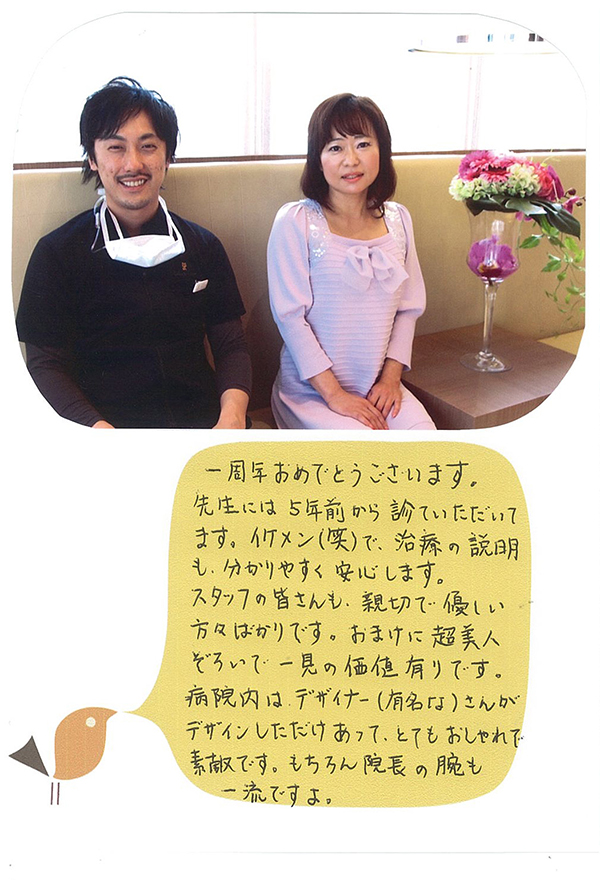 一周年おめでとうございます。
先生には5年前から診ていただいて
ます。イケメン(笑)で、治療の説明
も、分かりやすく安心します。
スタッフの皆さんも、親切で優しい
方々ばかりです。おまけに超美人
ぞろいで一見の価値有りです。
病院内は、デザイナー(有名な)さんが
デザインしただけあって、とてもおしゃれで
素敵です。もちろん院長の腕も
一流ですよ。